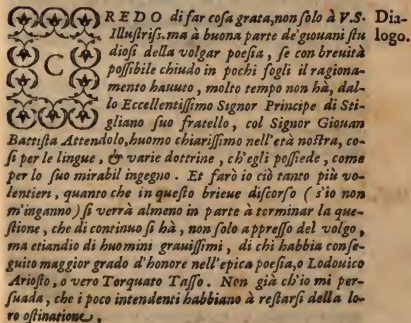 CREDO di far coſa grata, non ſolo à V.S. Dia-
Illuſtriſs. ma à buona parte de'giouani ſtu logo.
dioſi della volgar poeſia, ſe con breuità
poſſibile chiudo in pochi fogli il ragiona-
mento hauuto, molto tempo non hà, dal-
lo Eccellentiſſimo Signor Principe di Sti-
gliano ſuo fratello, col Signor Giouan
Battiſta Attendolo, huomo chiariſſimo nell'età noſtra, co-
ſi per le lingue, & varie dottrine, ch'egli poſſiede, come
per lo ſuo mirabil ingegno. Et farò io ciò tanto più vo-
lentieri, quanto che in queſto brieue diſcorſo (s'io non
m'inganno) ſi verrà almeno in parte à terminar la que-
ſtione, che di continuo ſi hà, non ſolo appreſſo del volgo,
ma etiandio di huomini grauiſſimi, di chi habbia conſe-
guito maggior grado d'honore nell'epica poeſia, o Lodouico
Arioſto, o vero Torquato Taſſo. Non già ch'io mi per-
ſuada, che i poco intendenti habbiano à reſtarſi della lo-
ro oſtinatione,